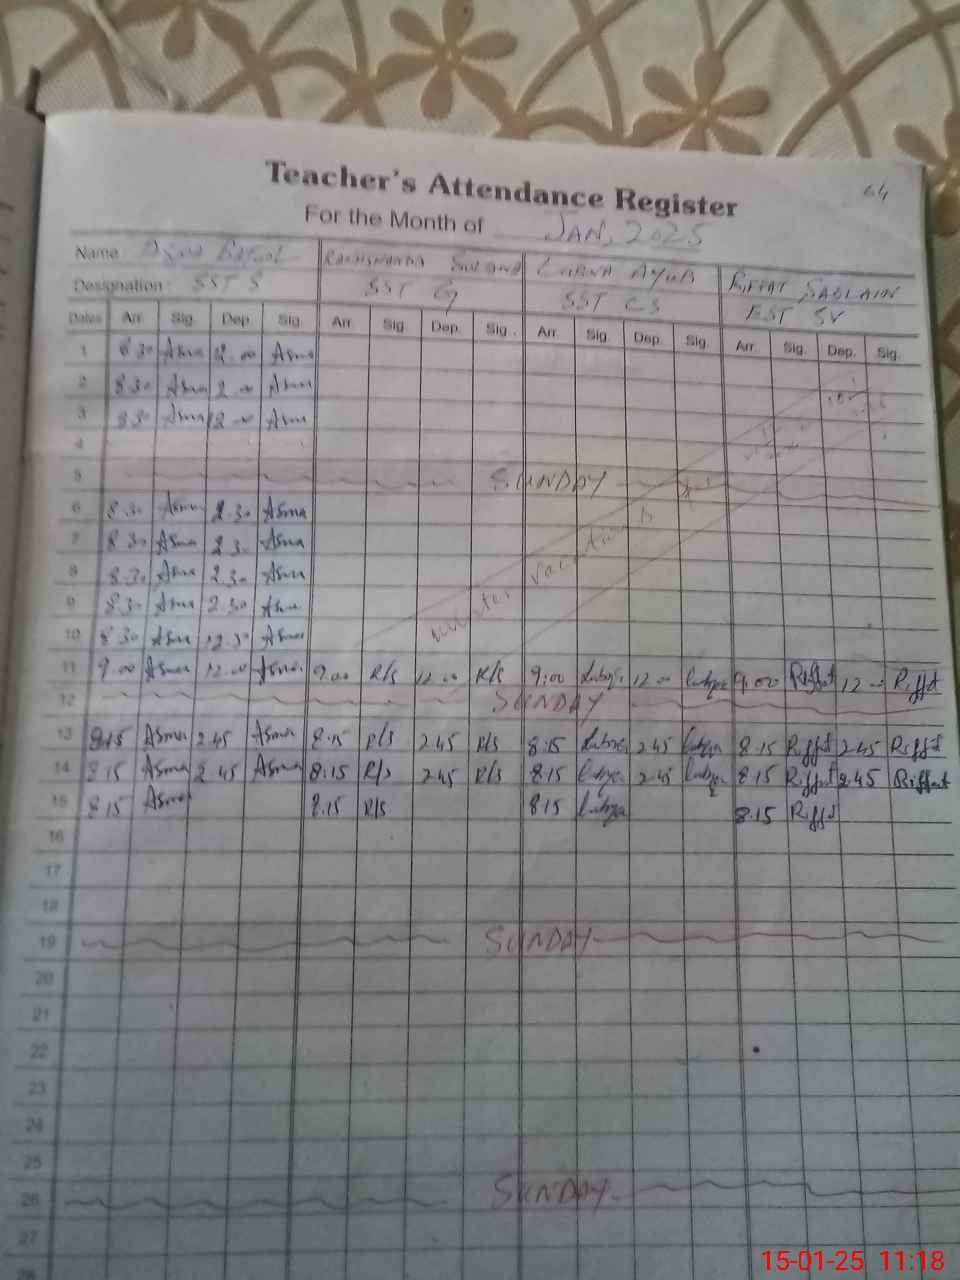 64
Teacher's Attendance Register
For the Month of JAN, 2025
Name Sultana LUBNA AYUB RIFFAT SABLAIN
Designation: SST S SST G SST CS EST SV
Dates Arr. Sig. Dep. Sig. Arr. Sig. Dep. Sig. Arr. Sig. Dep. Sig. Arr. Sig. Dep. Sig.
1 8.30 Asma 2.00 Asma
2 8.30 Asma 2.00 Asma
3 8.30 Asma 2.00 Asma
4
5 SUNDAY
6 8.30 Asma 2.30 Asma
7 8.30 Asma 2.30 Asma
8 8.30 Asma 2.30 Asma
winter vacation
9 8.30 Asma 2.30 Asma
10 8.30 Asma 12.30 Asma
11 9.00 Asma 12.00 Asma 9.00 R/s 12.00 R/s 9:00 12.00 9.00 Riffat 12.00 Riffat
12 SUNDAY
13 8.15 Asma 2.45 Asma 8.15 R/s 2.45 R/s 8.15 2.45 8.15 Riffat 2.45 Riffat
14 8.15 Asma 2.45 Asma 8:15 R/s 2.45 R/s 8.15 2.45 8.15 Riffat 2.45 Riffat
15 8.15 Asma 8.15 R/s 8.15 8.15 Riffat
16
17
18
19 SUNDAY
20
21
22
23
24
25
26 SUNDAY
27
28
15-01-25 11:18